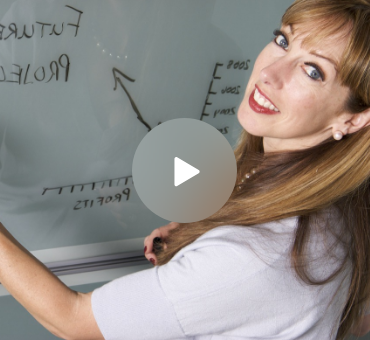 FUTURE
PROJEC
2008
2006
PROFITS